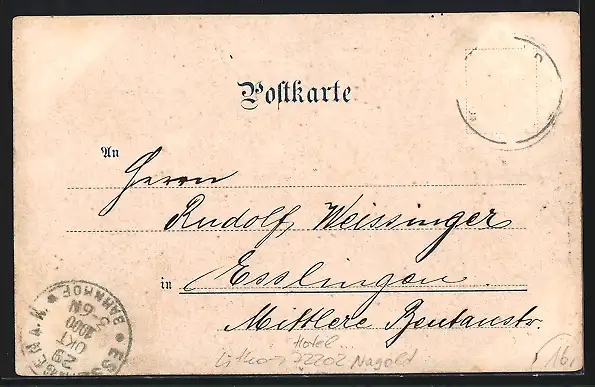 Postkarte
An Herrn
Rudolf Weissinger
in Esslingen.
Mittlere Beutaustr.
Hotel
72202 Nagold
16,
ESSLINGEN
BAHNHOF
29
OKT
1900
5-6N